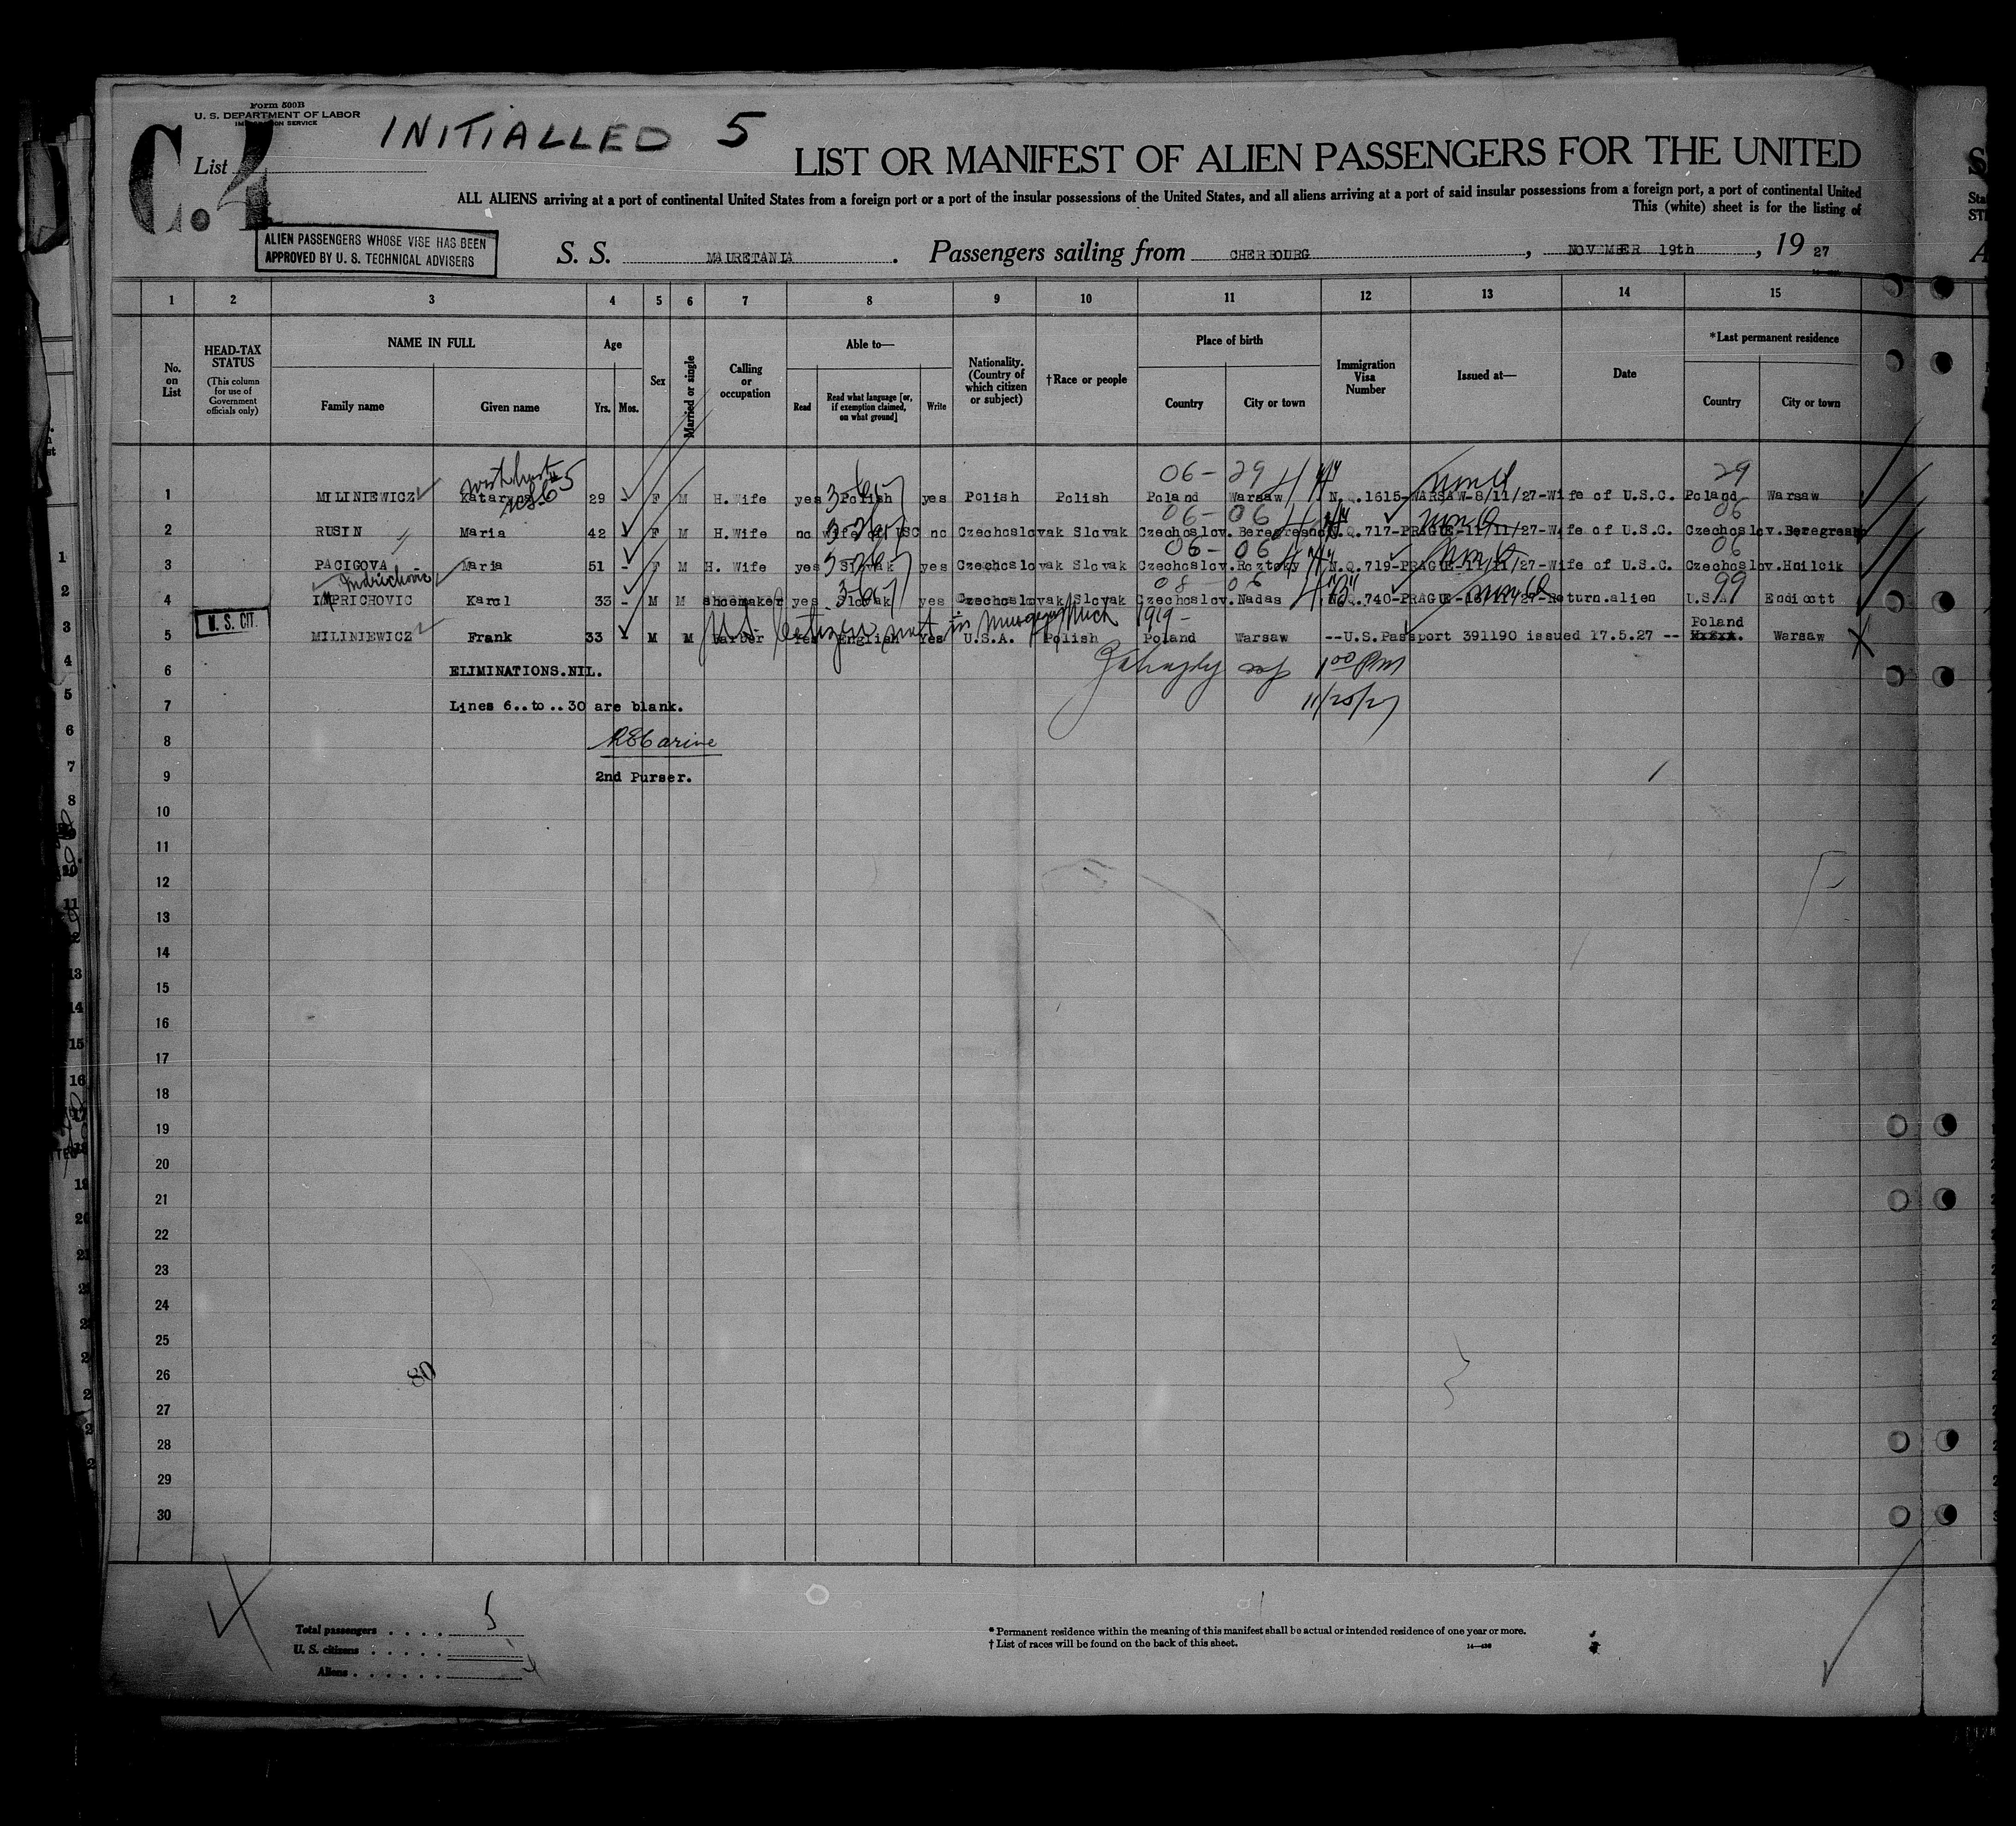 Form 500B
U. S. DEPARTMENT OF LABOR
IMMIGRATION SERVICE
C.4
List
INITIALLED 5
LIST OR MANIFEST OF ALIEN PASSENGERS FOR THE UNITED
ALL ALIENS arriving at a port of continental United States from a foreign port or a port of the insular possessions of the United States, and all aliens arriving at a port of said insular possessions from a foreign port, a port of continental United
This (white) sheet is for the listing of
ALIEN PASSENGERS WHOSE VISE HAS BEEN
APPROVED BY U. S. TECHNICAL ADVISERS
S. S. MAURETANIA. Passengers sailing from CHERBOURG, NOVEMBER 19th, 1927
1 2 3 4 5 6 7 8 9 10 11 12 13 14 15
No. on List
HEAD-TAX STATUS
(This column for use of Government officials only)
NAME IN FULL
Family name Given name
Age
Yrs. Mos.
Sex
Married or single
Calling or occupation
Able to—
Read Read what language [or, if exemption claimed, on what ground] Write
Nationality. (Country of which citizen or subject)
†Race or people
Place of birth
Country City or town
Immigration Visa Number
Issued at—
Date
*Last permanent residence
Country City or town
06-29 29
1 MILINIEWICZ Kataryna 29 - F M H. Wife yes Polish yes Polish Polish Poland Warsaw N.Q.1615-WARSAW-8/11/27-Wife of U.S.C. Poland Warsaw
06-06 06
2 RUSIN Maria 42 F M H.Wife no Wife of USC no Czechoslovak Slovak Czechoslov. N.Q.717-PRAGUE-11/11/27-Wife of U.S.C. Czechoslov.
06-06 06
3 PACIGOVA Maria 51 - F M H. Wife yes Slovak yes Czechoslovak Slovak Czechoslov.Roztoky N.Q.719-PRAGUE-11/11/27-Wife of U.S.C. Czechoslov.Hnilcik
08-06 99
4 IMPRICHOVIC Karol 33 - M M shoemaker yes Slovak yes Czechoslovak Slovak Czechoslov.Nadas N.Q.740-PRAGUE-16/11/27-Return.alien U.S.A. Endicott
U. S. CIT.
U.S. Citizen 1919-
Poland
5 MILINIEWICZ Frank 33 M M Barber Yes English Yes U.S.A. Polish Poland Warsaw --U.S.Passport 391190 issued 17.5.27 -- Warsaw
6 ELIMINATIONS.NIL. 1 00 PM
7 Lines 6..to..30 are blank. 11/25/27
8
9 2nd Purser.
10
11
12
13
14
15
16
17
18
19
20
21
22
23
24
25
26 80
27
28
29
30
Total passengers . . . . 5
U. S. citizens . . . . .
Aliens . . . . . .
* Permanent residence within the meaning of this manifest shall be actual or intended residence of one year or more.
† List of races will be found on the back of this sheet.